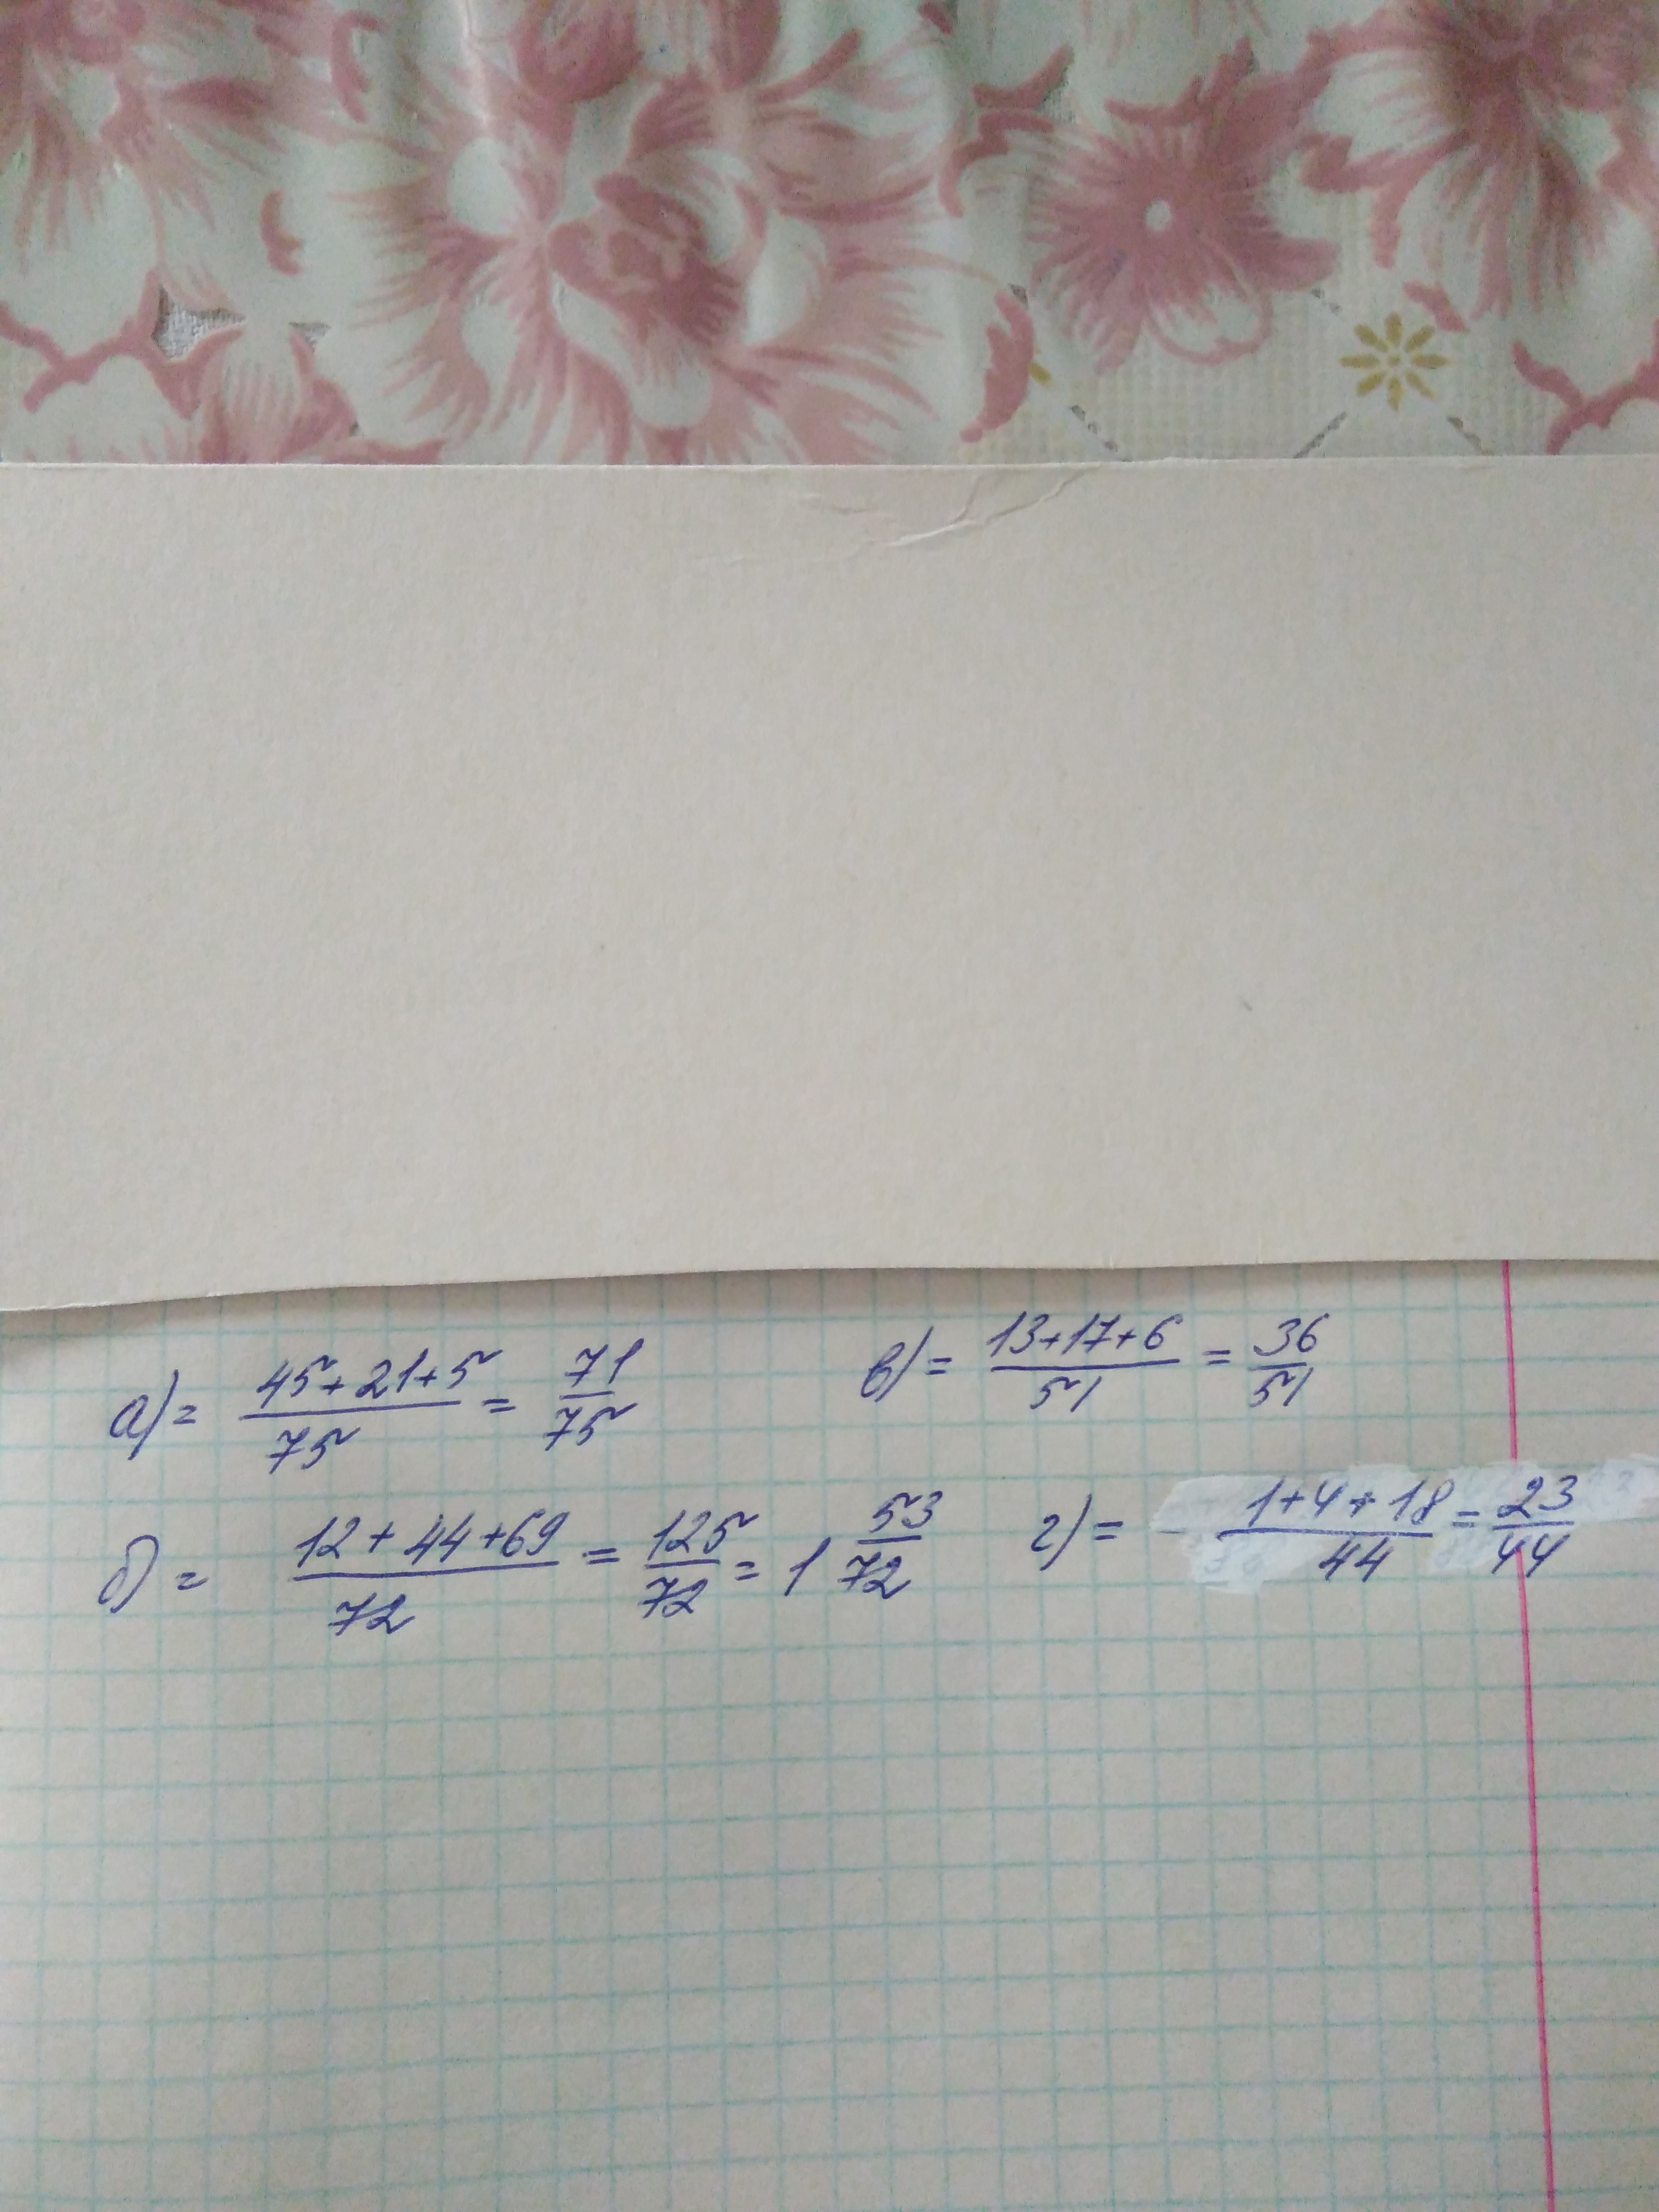 а) = (45+21+5)/75 = 71/75
в) = (13+17+6)/51 = 36/51
б) = (12+44+69)/72 = 125/72 = 1 53/72
г) = (1+4+18)/44 = 23/44